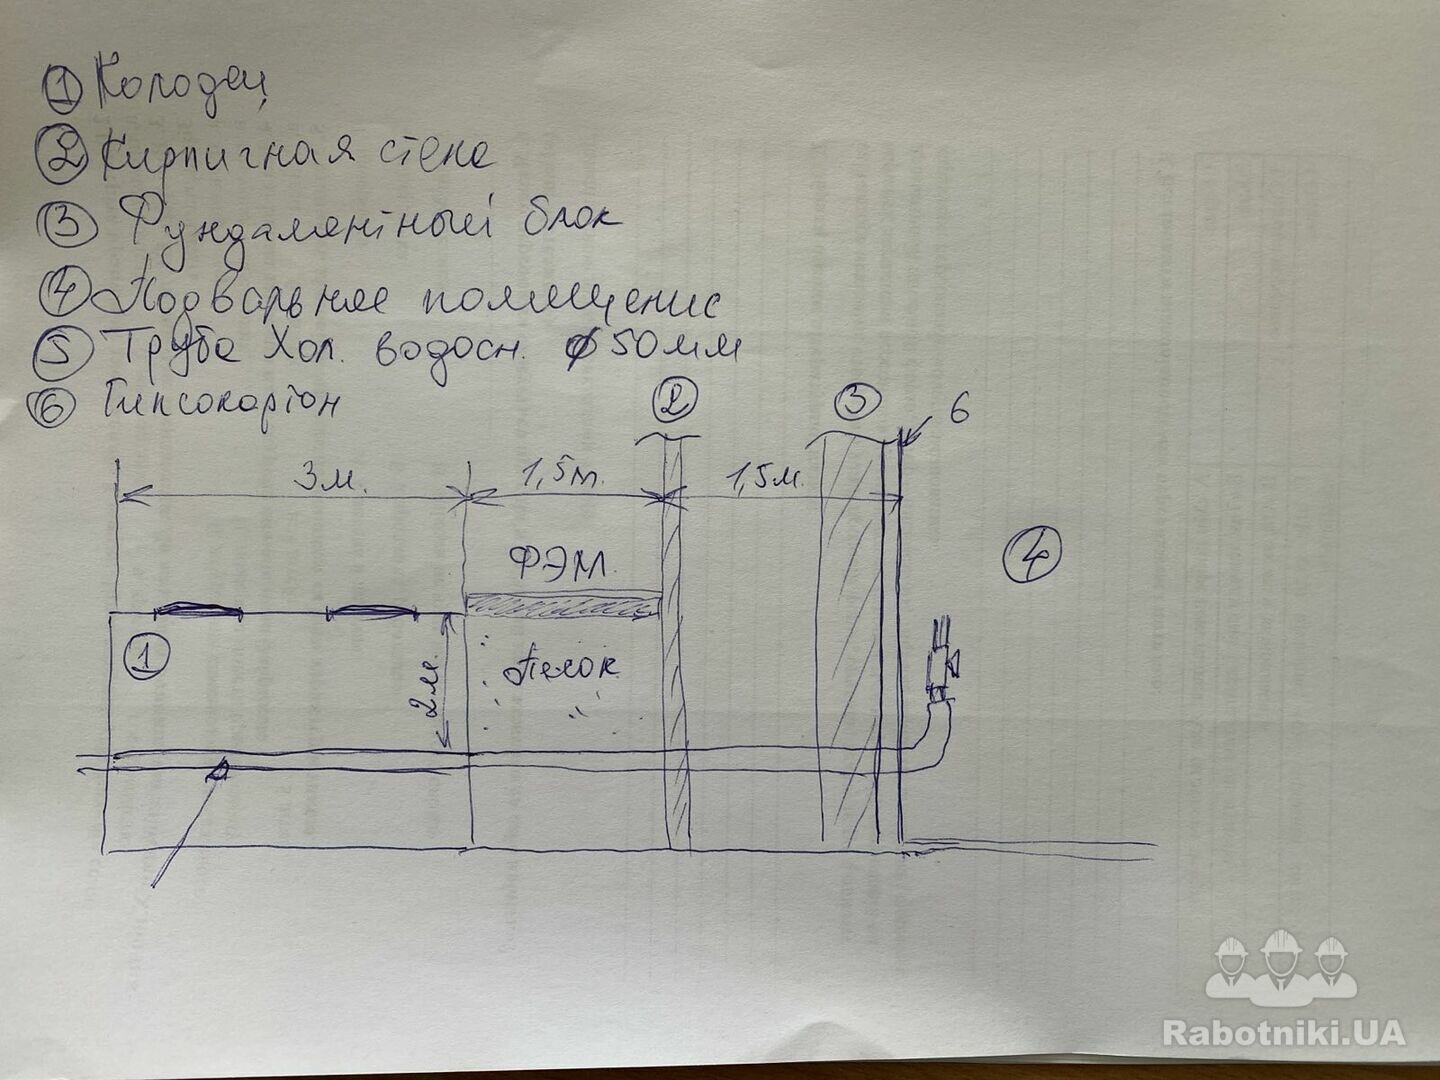 ① Колодец
② Кирпичная стена
③ Фундаментный блок
④ Подвальное помещение
⑤ Труба Хол. водосн. ⌀50мм
⑥ Гипсокартон
② ③ 6
3м. 1,5м. 1,5м.
ФЭМ.
④
① 2м. Песок
Rabotniki.UA